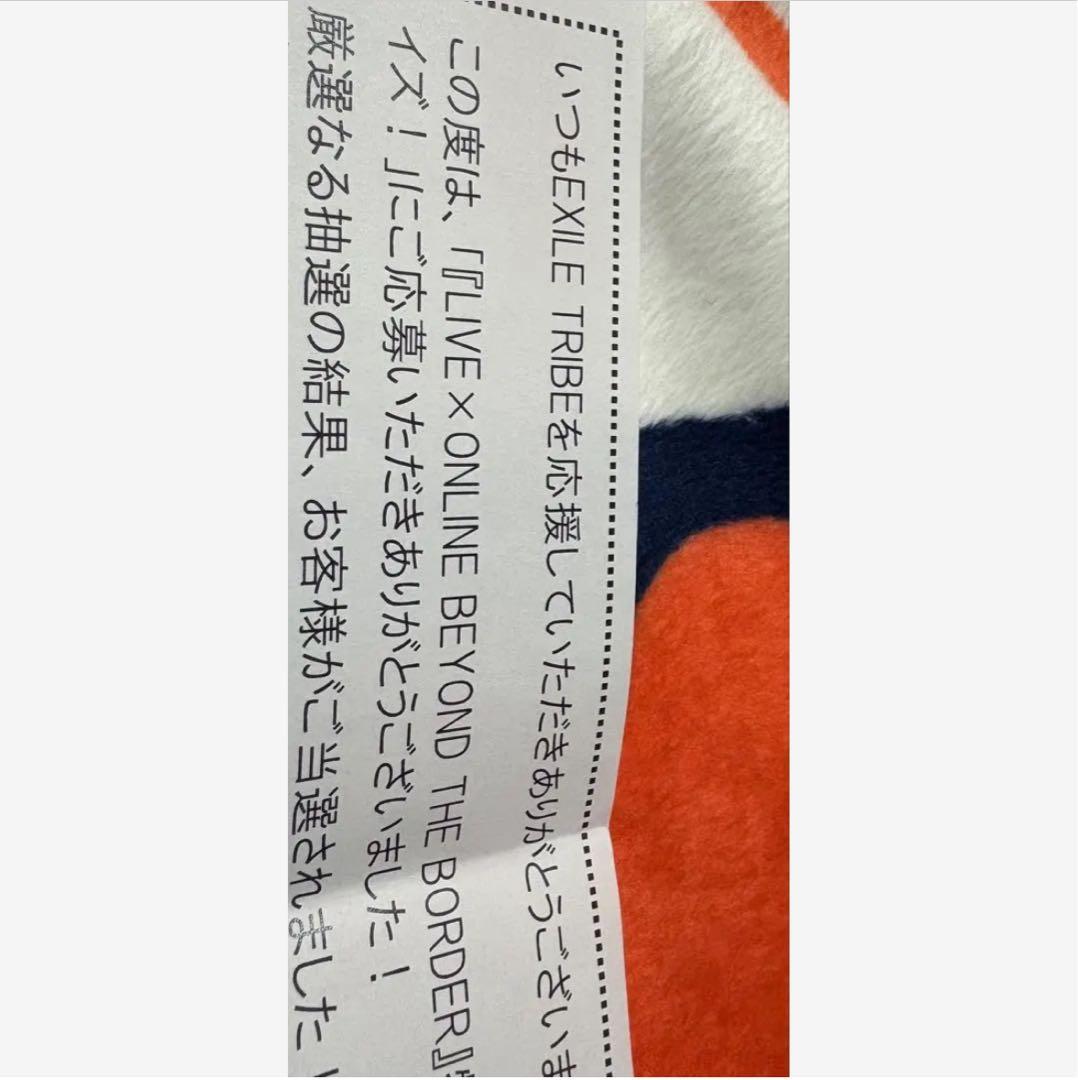 いつもEXILE TRIBEを応援していただきありがとうございま
この度は、「『LIVE×ONLINE BEYOND THE BORDER』
イズ!」にご応募いただきありがとうございました!
厳選なる抽選の結果、お客様がご当選されました!